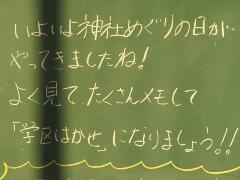 いよいよ神社めぐりの日が
やってきましたね!
よく見て、たくさんメモして
「学区はかせ」になりましょう!!